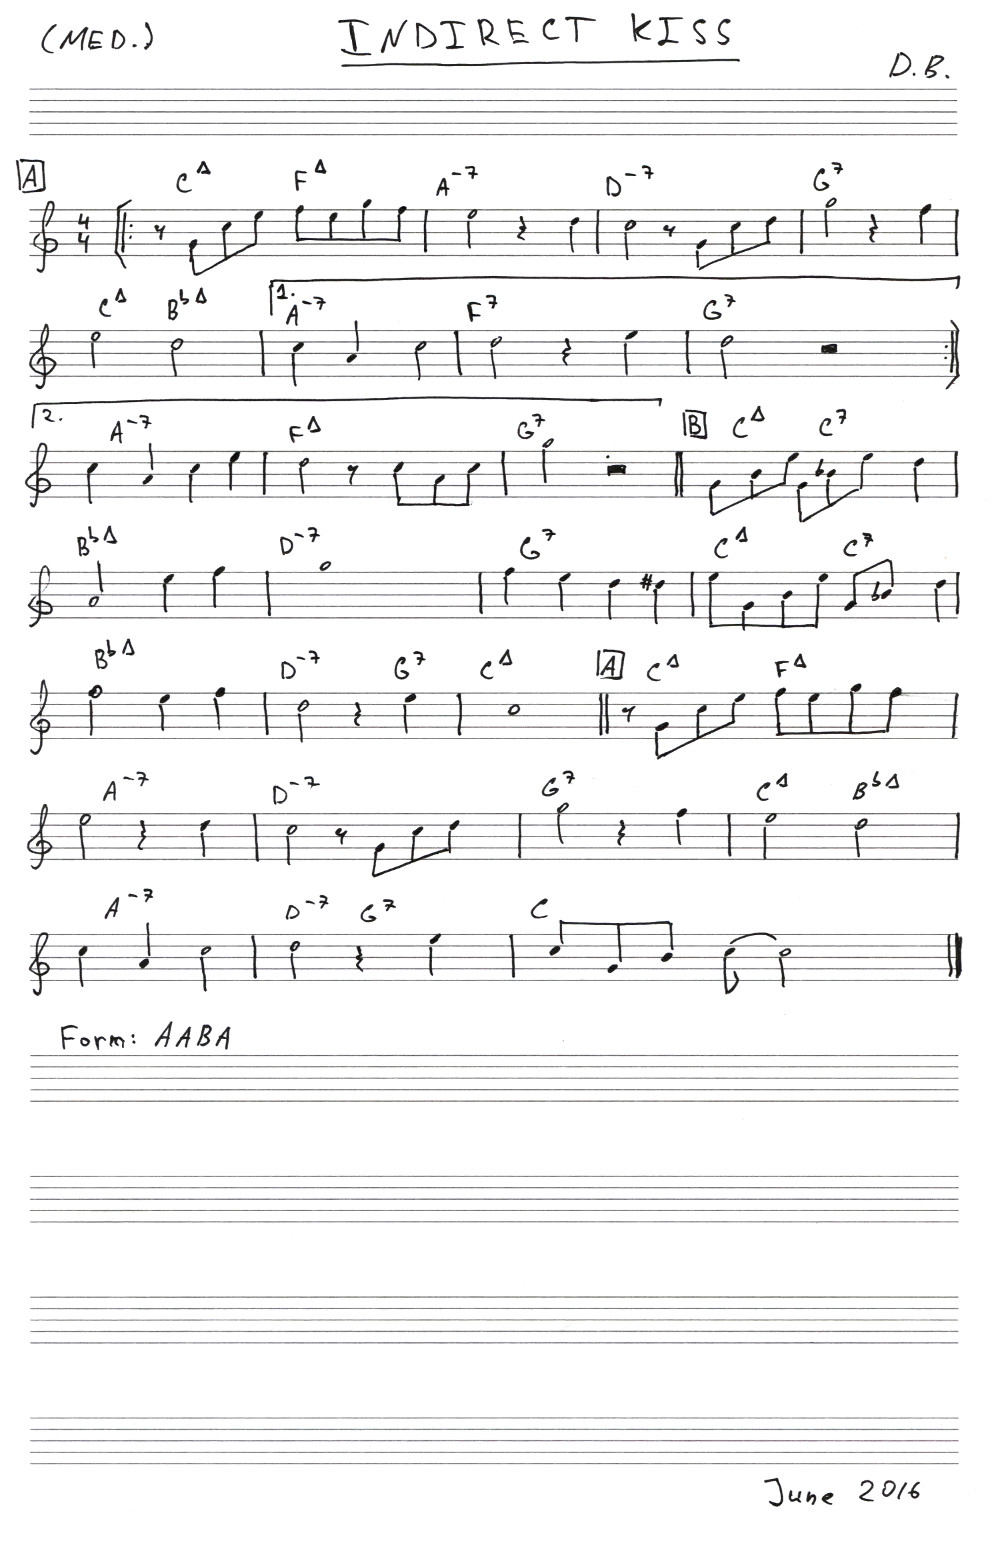 (MED.) INDIRECT KISS
D.B.
A C∆ F∆ A-7 D-7 G7
4/4
C∆ Bb∆ 1. A-7 F7 G7
2. A-7 F∆ G7 B C∆ C7
Bb∆ D-7 G7 C∆ C7
Bb∆ D-7 G7 C∆ A C∆ F∆
A-7 D-7 G7 C∆ Bb∆
A-7 D-7 G7 C
Form: AABA
June 2016